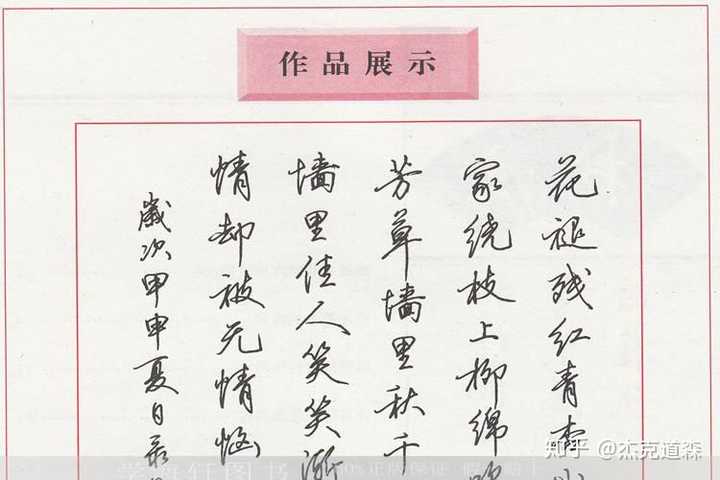 作品展示
花褪残红青杏小
家绕枝上柳绵
芳草墙里秋千
墙里佳人笑笑渐
情却被无情恼
岁次甲申夏日录
知乎 @杰克道森
学海轩图书
100%正版保证